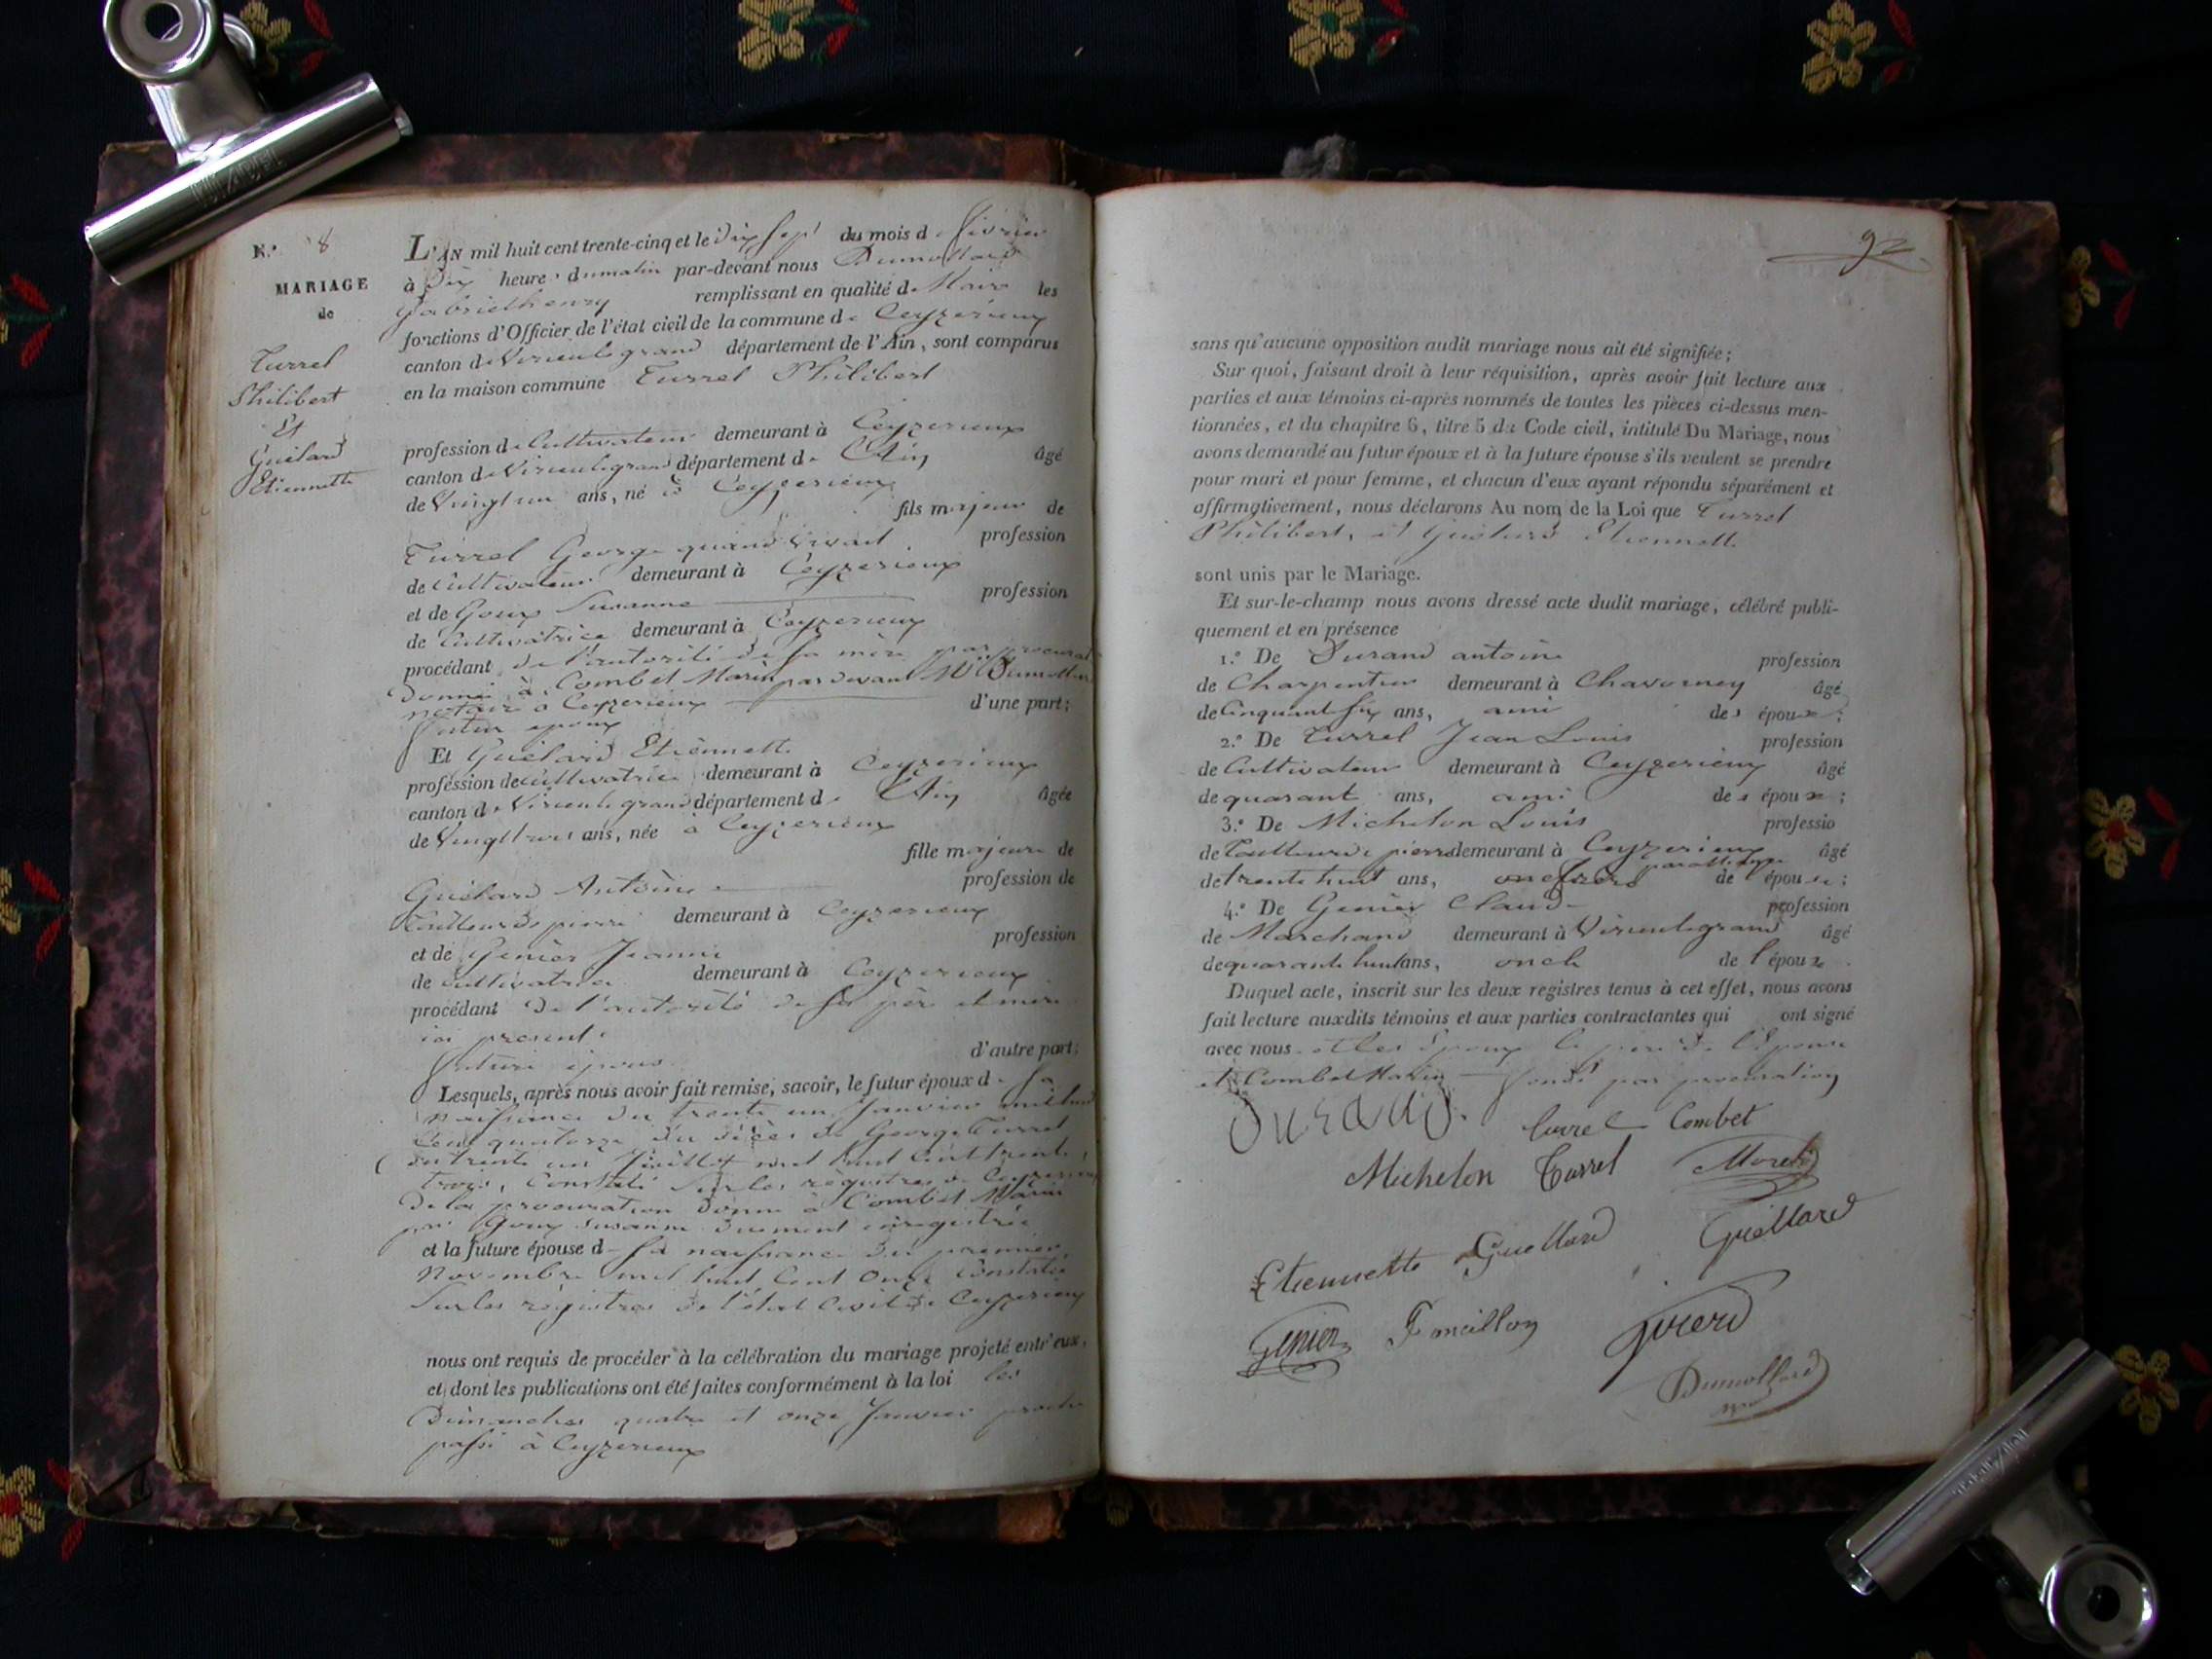 N.° 8
MARIAGE
de
Turrel
Philibert
Et
Guélard
Etiennette
L'AN mil huit cent trente-cinq et le Dix sept du mois d. février
à Dix heures dumatin par-devant nous Dumollard
Gabriel henry remplissant en qualité d. Maire les
fonctions d'Officier de l'état civil de la commune d. Ceyzerieux
canton d. Virieulegrand département de l'Ain, sont comparus
en la maison commune Turrel Philibert
profession d. Cultivateur demeurant à Ceyzerieux
canton d. Virieulegrand département d. l'Ain âgé
de Vingtun ans, né à Ceyzerieux
fils majeur de
Turrel George quand vivait profession
de Cultivateur demeurant à Ceyzerieux
et de Goux Susanne profession
de Cultivatrice demeurant à Ceyzerieux
procédant de l'autorité de sa mère par procurat
Donnée à Combet Marin par devant Me Dumollard
notaire à Ceyzerieux d'une part;
futur epoux
Et Guélard Etiennette
profession de cultivatrice demeurant à Ceyzerieux
canton d. Virieulegrand département d. l'Ain âgée
de Vingttrois ans, née à Ceyzerieux
fille majeure de
Guélard Antoine profession de
Tailleur de pierre demeurant à Ceyzerieux
et de Genier Jeanne profession
de Cultivatrice demeurant à Ceyzerieux
procédant De l'autorité de ses père et mère
ici present
future epouse d'autre part;
Lesquels, après nous avoir fait remise, savoir, le futur époux d. sa
naissance du trente un Janvier mil huit
Cent quatorze, du décès de George Turrel
du trente un Juillet mil huit Cent trente
trois, Constaté sur les registres de Ceyzerieux
De la procuration donné à Combet Marin
par Goux Susanne Duement enregistrée
et la future épouse d. sa naissance du premier
Novembre mil huit Cent Onze Constatée
Sur les régistres de l'état Civil de Ceyzerieux
nous ont requis de procéder à la célébration du mariage projeté entr'eux,
et dont les publications ont été faites conformément à la loi les
Dimanches quatre et onze Janvier proche
passé à Ceyzerieux
92
sans qu'aucune opposition audit mariage nous ait été signifiée;
Sur quoi, faisant droit à leur réquisition, après avoir fait lecture aux
parties et aux témoins ci-après nommés de toutes les pièces ci-dessus men-
tionnées, et du chapitre 6, titre 5 du Code civil, intitulé Du Mariage, nous
avons demandé au futur époux et à la future épouse s'ils veulent se prendre
pour mari et pour femme, et chacun d'eux ayant répondu séparément et
affirmativement, nous déclarons Au nom de la Loi que Turrel
Philibert, et Guélard Etiennette
sont unis par le Mariage.
Et sur-le-champ nous avons dressé acte dudit mariage, célébré publi-
quement et en présence
1.° De Durand antoine profession
de Charpentier demeurant à Chavorney âgé
de Cinquantesix ans, ami des époux;
2.° De Turrel Jean Louis profession
de Cultivateur demeurant à Ceyzerieux âgé
de quarant ans, ami des époux;
3.° De Michelon Louis professio
de Tailleur de pierre demeurant à Ceyzerieux âgé
de trente huit ans, de l'épouse;
4.° De Genier Claude profession
de Marchand demeurant à Virieulegrand âgé
de quarante huit ans, oncle de l'époux
Duquel acte, inscrit sur les deux registres tenus à cet effet, nous avons
fait lecture auxdits témoins et aux parties contractantes qui ont signé
avec nous et les époux le père de l'Epouse
et Combet Marin fondé par procuration
Durand. Turrel Combet
Michelon Turrel Morel
Etiennette Guellard Guéllard
Genier
Dumollard